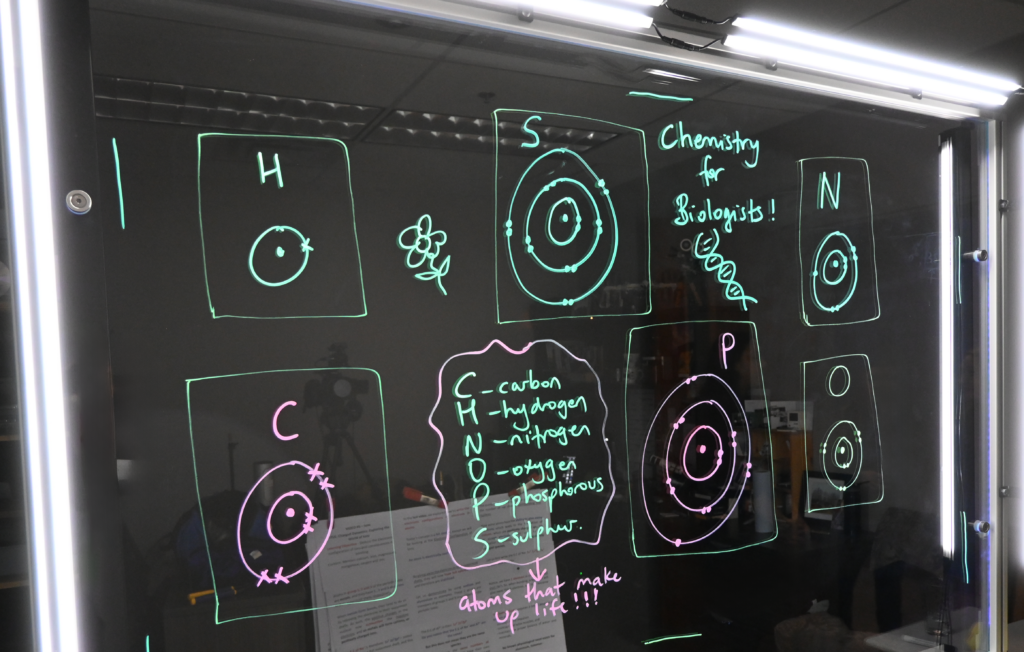 H
S
Chemistry
for
Biologists!!
N
C
C - carbon
H - hydrogen
N - nitrogen
O - oxygen
P - phosphorous
S - sulphur.
atoms that make
up life!!!
P
O